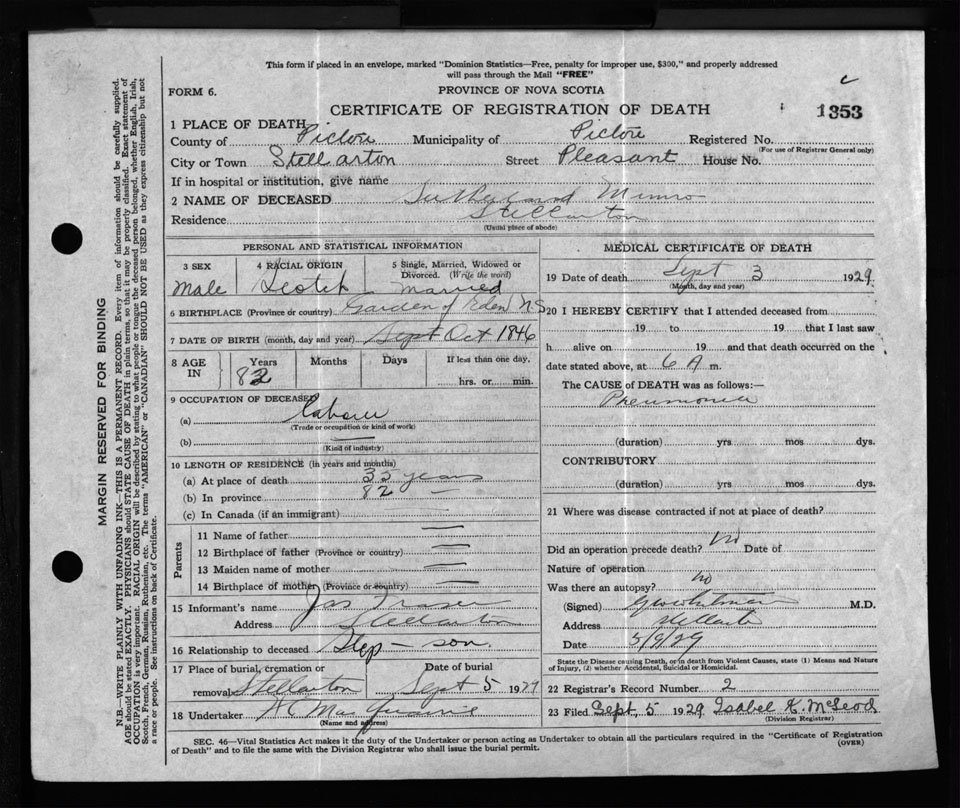 This form if placed in an envelope, marked "Dominion Statistics—Free, penalty for improper use, $300," and properly addressed
will pass through the Mail "FREE"
FORM 6.
PROVINCE OF NOVA SCOTIA
CERTIFICATE OF REGISTRATION OF DEATH
1353
1 PLACE OF DEATH
County of Pictou Municipality of Pictou Registered No.
(For use of Registrar General only)
City or Town Stellarton Street Pleasant House No.
If in hospital or institution, give name
2 NAME OF DECEASED Sutherland Munro
Residence Stellarton
(Usual place of abode)
PERSONAL AND STATISTICAL INFORMATION
3 SEX Male
4 RACIAL ORIGIN Scotch
5 Single, Married, Widowed or Divorced. (Write the word) Married
6 BIRTHPLACE (Province or country) Garden of Eden NS
7 DATE OF BIRTH (month, day and year) Sept Oct 1846
8 AGE IN Years 82 Months Days If less than one day, hrs. or min.
9 OCCUPATION OF DECEASED
(a) Laborer
(Trade or occupation or kind of work)
(b) —
(Kind of industry)
10 LENGTH OF RESIDENCE (in years and months)
(a) At place of death 35 years
(b) In province 82 —
(c) In Canada (if an immigrant)
Parents
11 Name of father —
12 Birthplace of father (Province or country) —
13 Maiden name of mother —
14 Birthplace of mother (Province or country) —
15 Informant's name Jas Fraser
Address Stellarton
16 Relationship to deceased Step - son.
17 Place of burial, cremation or removal Stellarton
Date of burial Sept 5 1929
18 Undertaker
(Name and address)
MEDICAL CERTIFICATE OF DEATH
19 Date of death Sept 3 1929.
(Month, day and year)
20 I HEREBY CERTIFY that I attended deceased from
19 to 19 that I last saw
h alive on 19 and that death occurred on the
date stated above, at 6 A m.
The CAUSE of DEATH was as follows:—
Pneumonia
(duration) yrs mos dys.
CONTRIBUTORY
(duration) yrs mos dys.
21 Where was disease contracted if not at place of death?
Did an operation precede death? No Date of
Nature of operation
Was there an autopsy? No
(Signed) M.D.
Address Stellarton
Date 5/9/29
State the Disease causing Death, or in death from Violent Causes, state (1) Means and Nature
of Injury, (2) whether Accidental, Suicidal or Homicidal.
22 Registrar's Record Number 2
23 Filed Sept. 5 1929 Isabel K. McLeod
(Division Registrar)
SEC. 46—Vital Statistics Act makes it the duty of the Undertaker or person acting as Undertaker to obtain all the particulars required in the "Certificate of Registration
of Death" and to file the same with the Division Registrar who shall issue the burial permit.
(OVER)
MARGIN RESERVED FOR BINDING
N.B.—WRITE PLAINLY WITH UNFADING INK—THIS IS A PERMANENT RECORD. Every item of information should be carefully supplied.
AGE should be stated EXACTLY. PHYSICIANS should STATE CAUSE OF DEATH in plain terms, so that it may be properly classified. Exact statement of
OCCUPATION is very important. RACIAL ORIGIN will be described by stating to what people or tongue the deceased person belonged, whether English, Irish,
Scotch, French, German, Russian, Ruthenian, etc. The terms "AMERICAN" or "CANADIAN" SHOULD NOT BE USED as they express citizenship but not
a race or people. See instructions on back of Certificate.